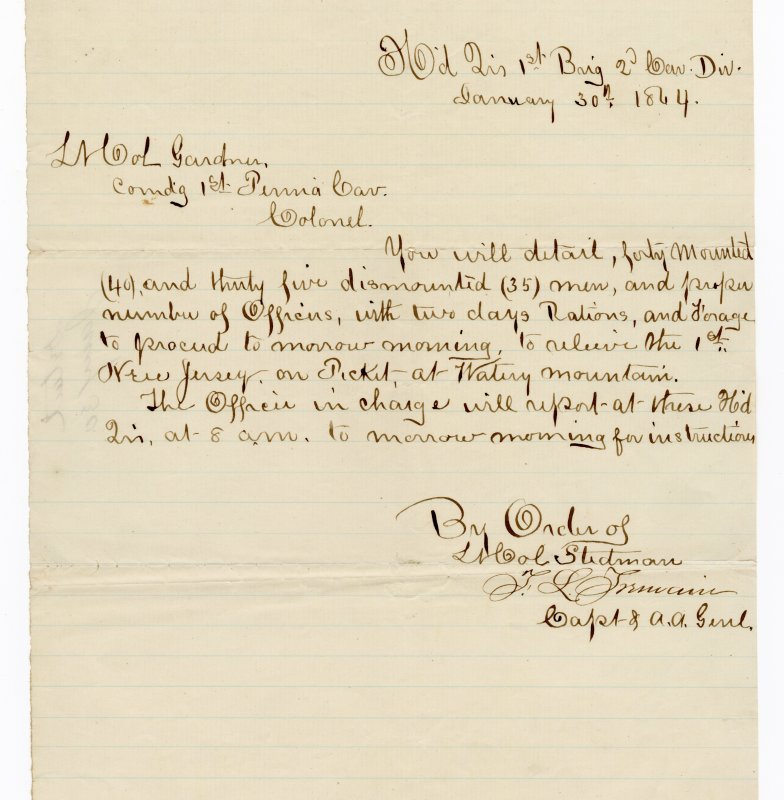 Hd Qrs 1st Brig 2d Cav. Div.
January 30th 1864.
Lt Col Gardner,
Comdg 1st Penna Cav.
Colonel.
You will detail, forty mounted
(40), and thirty five dismounted (35) men, and proper
number of Officers, with two days Rations, and Forage
to proceed to morrow morning, to relieve the 1st
New Jersey. on Picket, at Watery mountain.
The Officer in charge will report at these Hd
Qrs, at 8 a.m. to morrow morning for instructions
By Order of
Lt Col Stedman
F. L. Tremain
Capt & A.A. Genl.